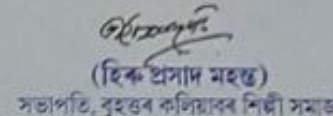 (হিৰু প্ৰসাদ মহন্ত)
সভাপতি, বৃহত্তৰ কলিয়াবৰ শিল্পী সমাজ